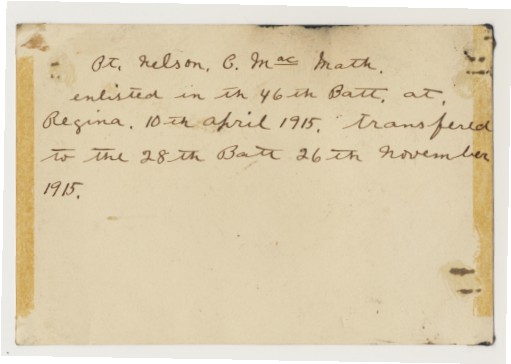 Pt. Nelson. C. Mac Math.
enlisted in th 46th Batt. at.
Regina. 10th april 1915. transfered
to the 28th Batt 26th November
1915.